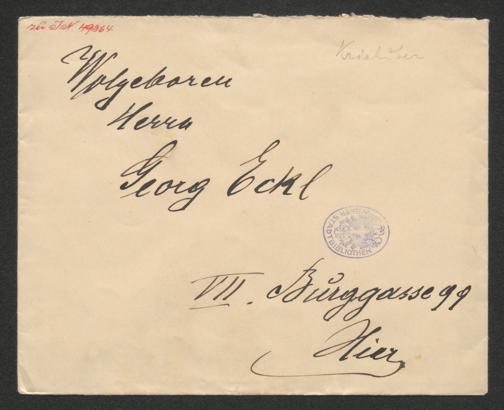 zu I.N. 49864
Wolgeboren
Herrn
Georg Eckl
STADTBIBLIOTHEK
VII. Burggasse 99
Hier